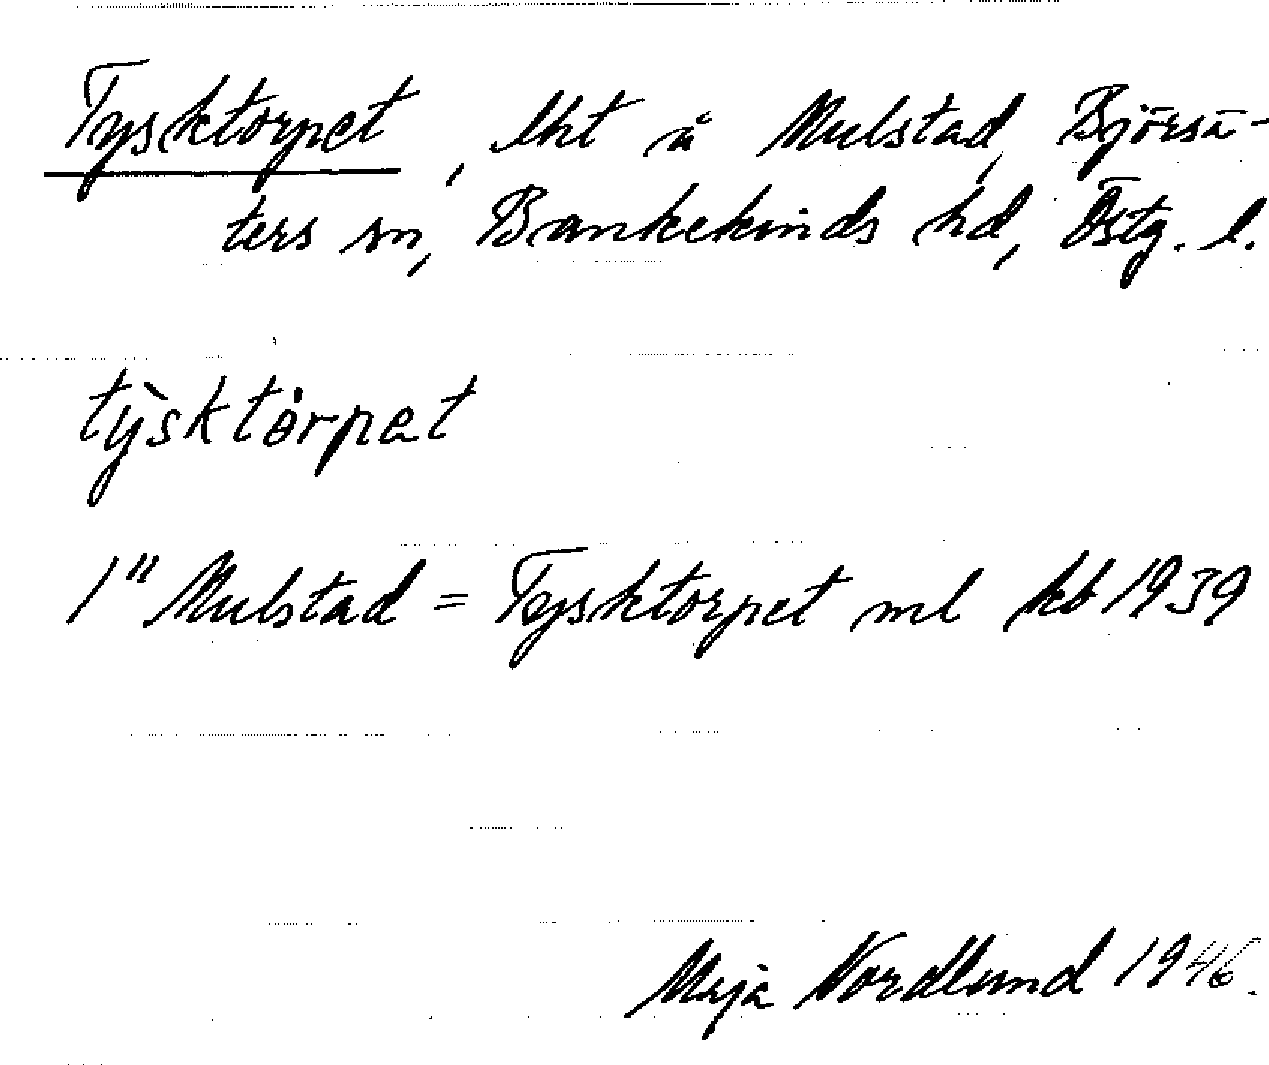 Tysktorpet, lht å Mulstad, Björsä-
ters sn, Bankekinds hd, Östg. l.
tỳsktȯrpet
1" Mulstad = Tysktorpet ml kb 1939
Maja Nordlund 1946.